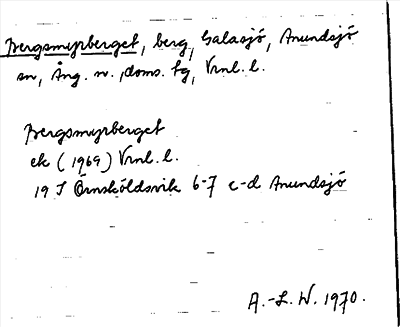 Bergsmyrberget, berg, Galasjö, Anundsjö
sn, Ång. n., doms. tg, Vrnl. l.
Bergsmyrberget
ek (1969) Vrnl. l.
19 I Örnsköldsvik 6-7 c-d Anundsjö
A.-L. W. 1970.